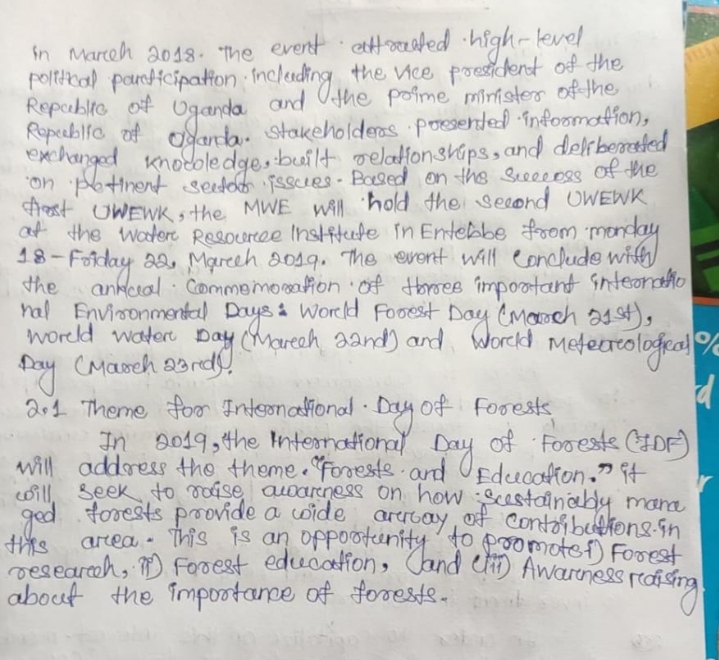 in March 2018. The event attracted high-level
political participation including the vice president of the
Republic of Uganda and the prime minister of the
Republic of Uganda. Stakeholders presented information,
exchanged knowledge, built relationships, and deliberated
on pertinent sector issues. Based on the success of the
first UWEWK, the MWE will hold the second UWEWK
at the Water Resource Institute in Entebbe from monday
18-Friday 22, March 2019. The event will conclude with
the annual Commemoration of three important internatio
nal Environmental Days: World Forest Day (March 21st),
World Water Day (March 22nd) and World Meteorological
Day (March 23rd).
2.1 Theme for International Day of Forests
In 2019, the International Day of Forests (IDF)
will address the theme. "Forests and Education." it
will seek to raise awarness on how sustainably mana
ged forests provide a wide array of contributions in
this area. This is an opportunity to promote: i) Forest
research, ii) Forest education, and (iii) Awarness raising
about the importance of forests.
%
d